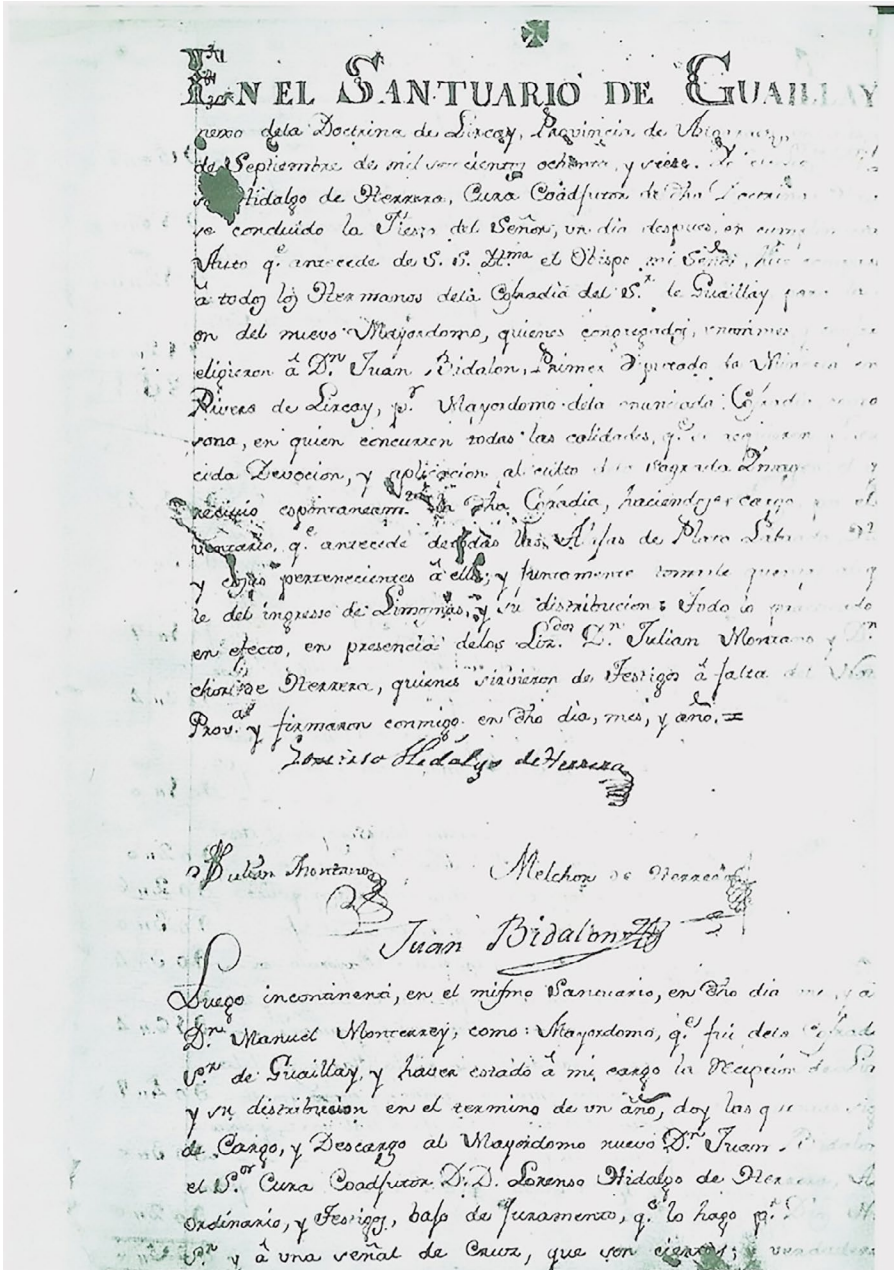 EN EL SANTUARIO DE GUAILLAY
nexo dela Doctrina de Lircay, Provincia de
de Septiembre de mil setecientos ochenta, y siete.
Hidalgo de Herrera, Cura Coadjutor de dha Doctrina
se concluido la Fiesta del Señor, un dia despues, en
Auto q.e antecede de S. S. Ytt.ma el Obispo mi Señor,
â todos los Hermanos dela Cofradia del S.r de Guaillay para la
on del nuevo Mayordomo, quienes congregados, unanimes y
eligieron â D.n Juan Bidalon, Primer Diputado de Mineria en
Rivera de Lircay, p.r Mayordomo dela enunciada Cofradia
sona, en quien concurren todas las calidades, q.e se requieren
cida Devocion, y aplicacion al culto dela Sagrada Ymagen
recivio espontaneam.te dha Cofradia, haciendose cargo
ventario, q.e antecede de todas las Alajas de Plata Labrada
y cosas pertenecientes â ella; y juntamente tomarle
te del ingresso de Limosnas, y su distribucion: Todo lo
en efecto, en presencia delos Liz.dos D.n Julian Montano y D.n
chor de Herrera, quienes sirvieron de Testigos â falta de
Prov.al y firmaron conmigo en dho dia, mes, y año. =
Lorenso Hidalgo de Herrera
Julian Montano Melchor de Herrera
Juan Bidalon
Luego incontinenti, en el mismo Santuario, en dho dia
D.n Manuel Monterrey, como Mayordomo, q.e fui dela
S.or de Guaillay, y haver estado â mi cargo la Recepcion de
y su distribucion en el termino de un año, doy las
de Cargo, y Descargo al Mayordomo nuevo D.n Juan Bidalon
el S.or Cura Coadjutor D.D. Lorenso Hidalgo de
Ordinario, y Testigos, bajo de Juramento, q.e lo hago p.r
S.or y â una señal de Cruz, que son ciertas; y